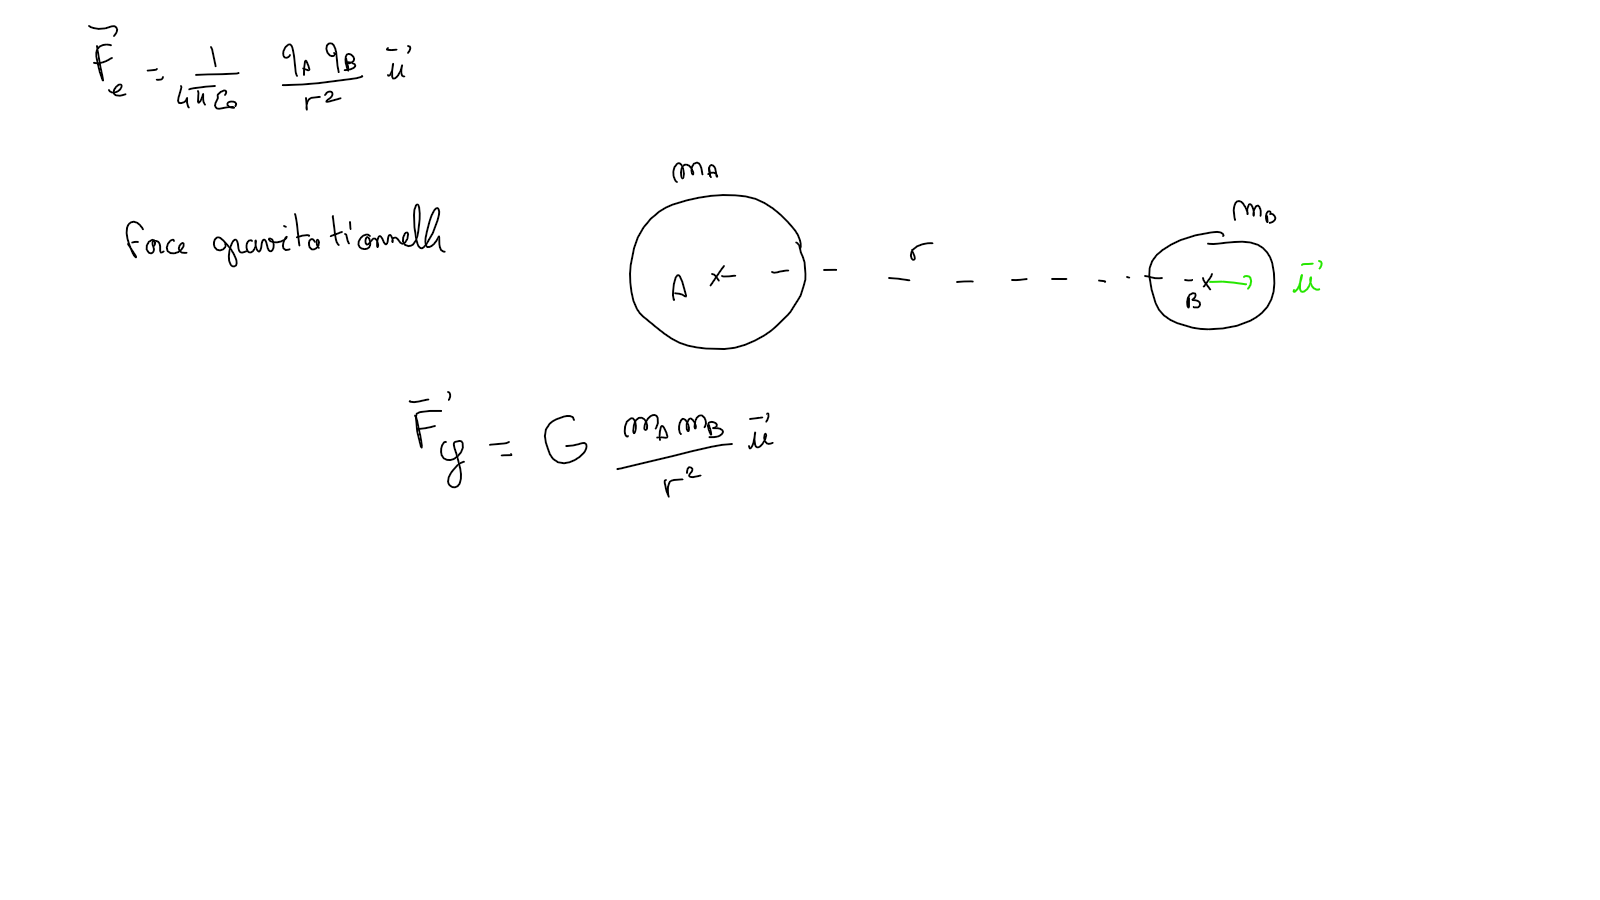 $\vec{F}_e = \frac{1}{4\pi\varepsilon_0} \frac{q_A q_B}{r^2} \vec{u}$
m_A
Force gravitationnelle
m_B
r
A
B
$\vec{u}$
$\vec{F}_g = G \frac{m_A m_B}{r^2} \vec{u}$